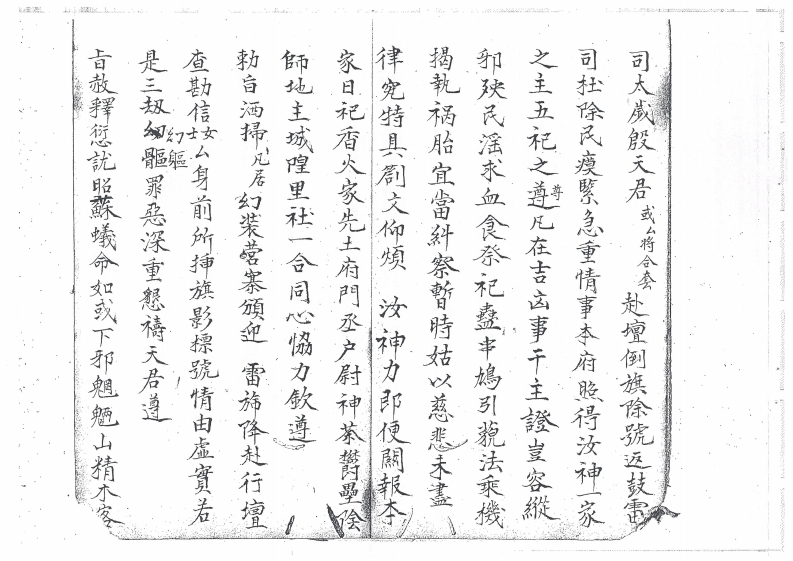 司太歲殷天君或厶將合套赴壇倒旗除號返鼓雷
司扗除民瘼緊急重情事本府照得汝神一家
之主五祀之尊尊凡在吉凶事干主證豈容縱
邪殃民滛求血食祭祀蠱串鳩引䫉法乘機
揭執禍胎宜當糾察暫時姑以慈悲未盡
律究特具劄文仰煩 汝神力即便關報本
家日祀香火家先土府門丞户尉神荼欝壘隂
師地主城隍里社一合同心恊力欽遵
勅旨洒掃凡居幻裝營寨頒迎 雷斾降赴行壇
查勘信士女厶身前所揷旗影摽號情由虛實若
是三刼幻軀幻軀罪惡深重懇禱天君遵
㫖赦釋愆訧昭蘇蟻命如或下邪魍魎山精木客